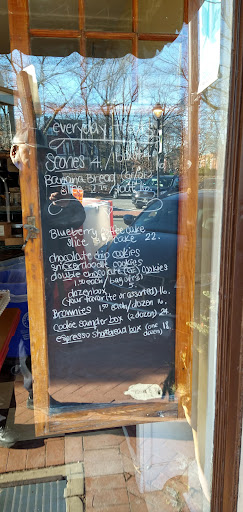 everyday treats
Scones 4.
Banana Bread
slice
Blueberry coffee cake
slice cake 22.
chocolate chip cookies
snickerdoodle cookies
double chocolate cookies
1.50 each / bag of
dozen box
(your favorite or assorted) 16.
Brownies 1.50 each / dozen 16.
Cookie sampler box (2 dozen) 24.
espresso shortbread box (one 18.
dozen)